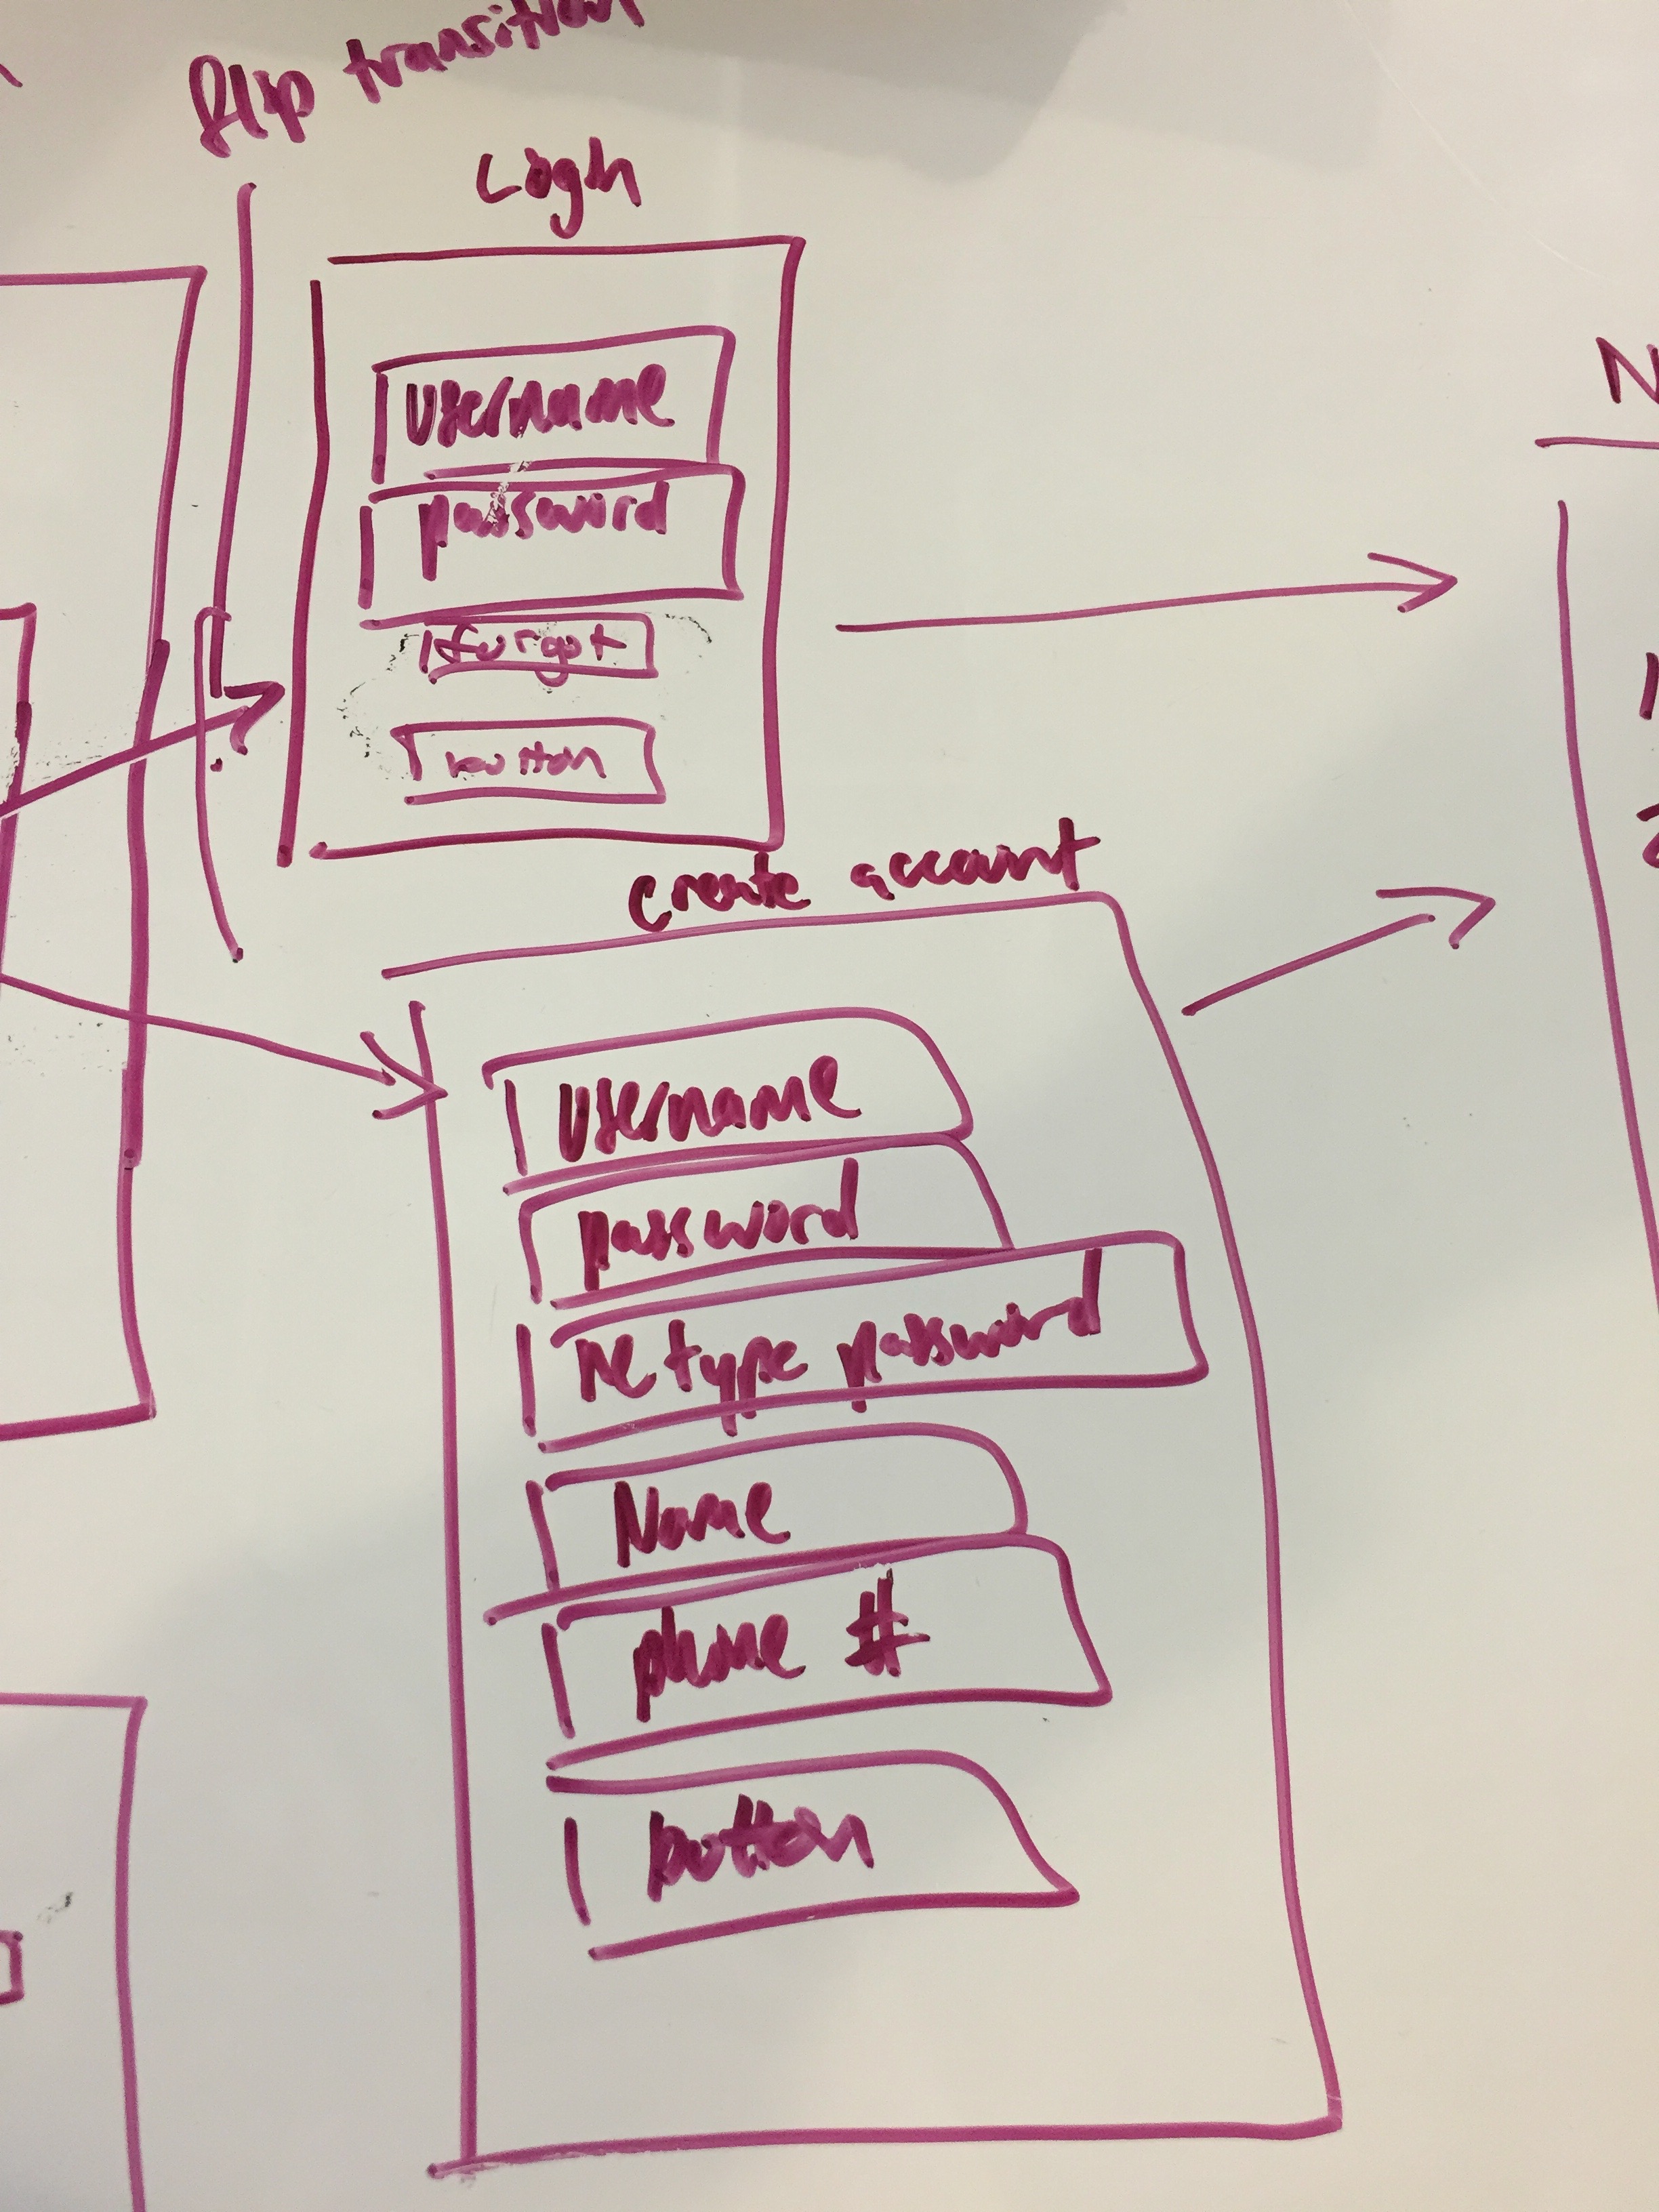 flip transition
Login
username
password
forgot
button
create account
username
password
Retype password
Name
phone #
button
N